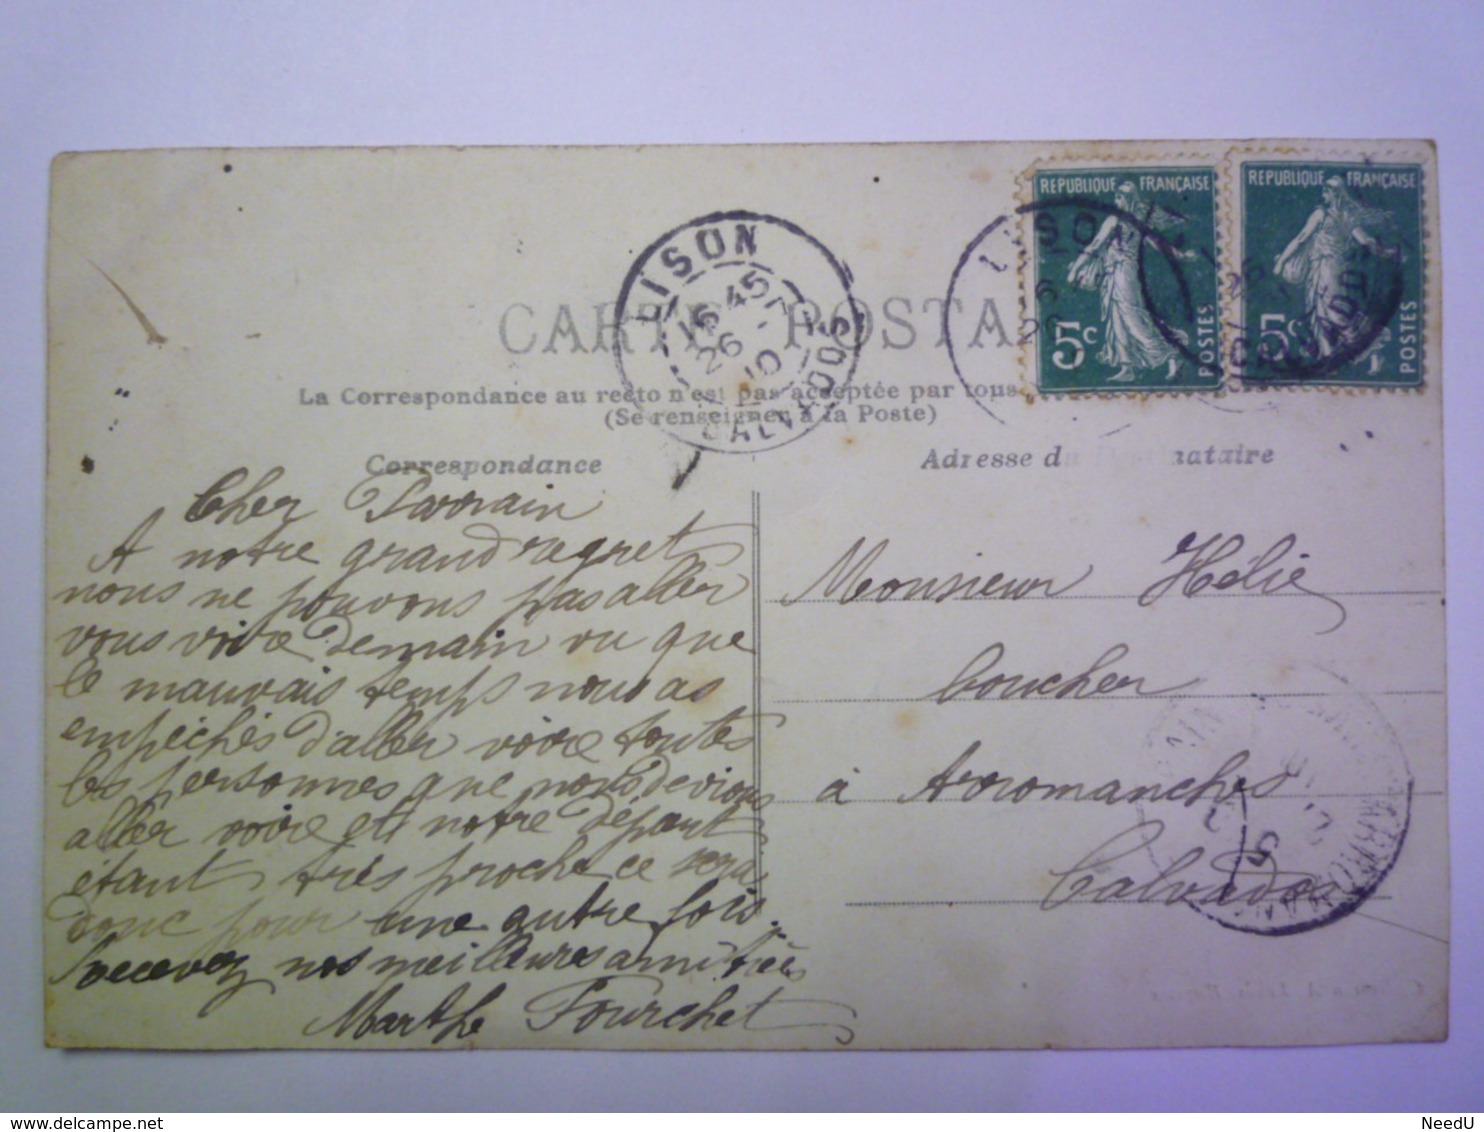 RÉPUBLIQUE FRANÇAISE
5c POSTES
RÉPUBLIQUE FRANÇAISE
5c POSTES
LISON
16 45
26 - 7
10
CALVADOS
LISON
16
26
CALVADOS
CARTE POSTA
La Correspondance au recto n'est pas acceptée par tous
(Se renseigner à la Poste)
Correspondance
Adresse du Destinataire
Cher
A notre grand regret
nous ne pouvons pas aller
vous voire demain vu que
le mauvais temps nous as
empéchés d'aller voire toutes
les personnes que nous devions
aller voire et notre départ
étant très proche ce sera
donc pour une autre fois.
recevez nos meilleures amitiés
Marthe Fourchet
Monsieur Hélie
boucher
à Arromanches
Calvados
NeedU
delcampe.net